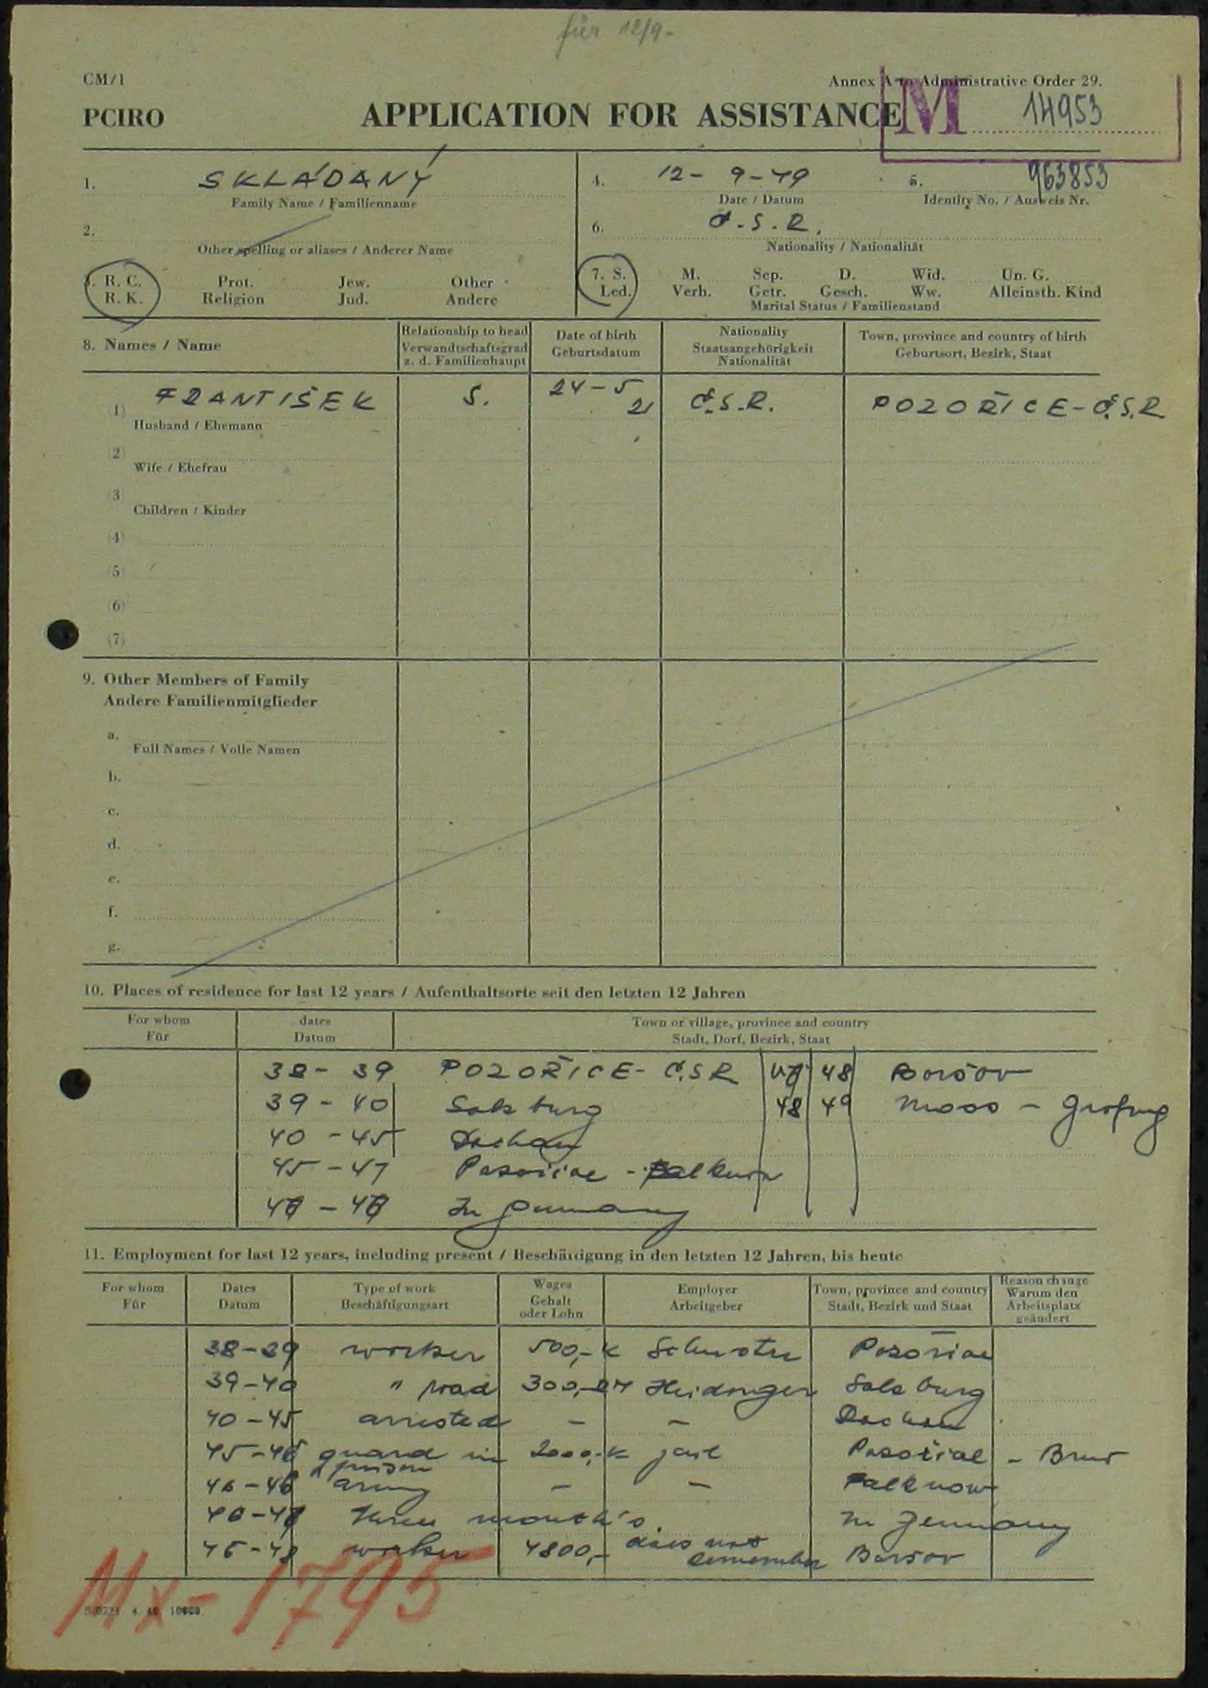 für 12/9-
CM/1
Annex A to Administrative Order 29.
PCIRO
APPLICATION FOR ASSISTANCE
M 14953
1. SKLÁDANÝ
Family Name / Familienname
4. 12- 9-49
Date / Datum
5. 963853
Identity No. / Ausweis Nr.
2.
Other spelling or aliases / Anderer Name
6. Č.S.R.
Nationality / Nationalität
3. R. C. Prot. Jew. Other
R. K. Religion Jud. Andere
7. S. M. Sep. D. Wid. Un. G.
Led. Verh. Getr. Gesch. Ww. Alleinsth. Kind
Marital Status / Familienstand
8. Names / Name
Relationship to head
Verwandtschaftsgrad
z. d. Familienhaupt
Date of birth
Geburtsdatum
Nationality
Staatsangehörigkeit
Nationalität
Town, province and country of birth
Geburtsort, Bezirk, Staat
1) FRANTIŠEK S. 24-5 21 Č.S.R. POZOŘICE-Č.S.R
Husband / Ehemann
(2)
Wife / Ehefrau
(3
Children / Kinder
(4)
(5)
(6)
(7)
9. Other Members of Family
Andere Familienmitglieder
a.
Full Names / Volle Namen
b.
c.
d.
e.
f.
g.
10. Places of residence for last 12 years / Aufenthaltsorte seit den letzten 12 Jahren
For whom
Für
dates
Datum
Town or village, province and country
Stadt, Dorf, Bezirk, Staat
38- 39 POZOŘICE- Č.S.R 47 48 Boršov
39 - 40 Salzburg 48 49 Moos -
40 - 45 Dachau
45 - 47 Pozořice -
- In Germany
11. Employment for last 12 years, including present / Beschäftigung in den letzten 12 Jahren, bis heute
For whom
Für
Dates
Datum
Type of work
Beschäftigungsart
Wages
Gehalt
oder Lohn
Employer
Arbeitgeber
Town, province and country
Stadt, Bezirk und Staat
Reason change
Warum den
Arbeitsplatz
geändert
38-39 worker 500,-K Pozořice
39-40 " road 300,- Salzburg
40-45 arrested - - Dachau
45-46 guard in prison 2000,-K jail Pozořice -
46-46 army - - Falknow
three month's In Germany
worker 4800,- does not remember Boršov
Mx-1795